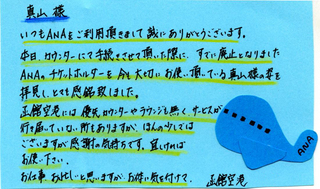 真山 様
いつもANAをご利用頂きまして誠にありがとうございます。
本日、カウンターにて手続きさせて頂いた際に、すでに廃止となりました
ANAのチケットホルダーを今も大切にお使い頂いている真山様の姿を
拝見し、とても感銘致しました。
函館空港には優先カウンターやラウンジも無く、サービスが
行き届いていない所もありますが、ほんの少しでは
ございますが感謝の気持ちです。宜ければ
お使い下さい。
お仕事お忙しいと思いますが、お体に気を付けて。
函館空港
ANA